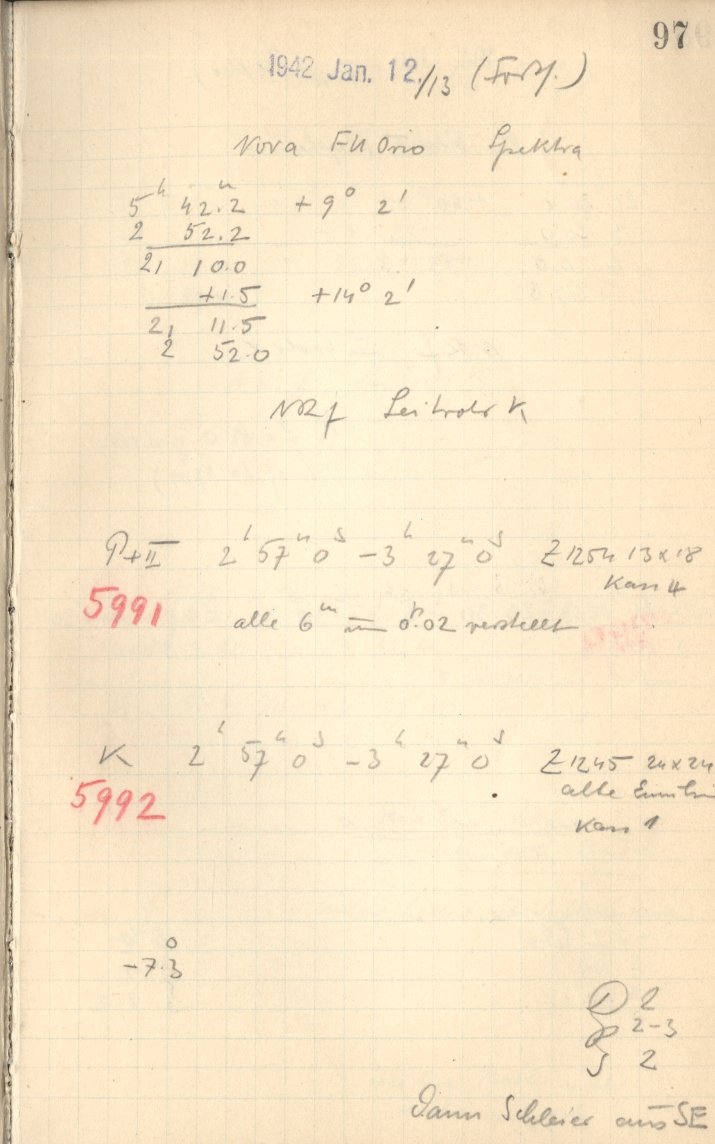 97
1942 Jan. 12./13 (Forts.)
Nova FU Orio Spektra
5ʰ 42.2ᵐ +9° 2'
2 52.2
21 10.0
+1.5 +14° 2'
21 11.5
2 52.0
Leitrohr K
P+II 2ʰ 57ᵐ 0ˢ -3ʰ 27ᵐ 0ˢ Z1254 13x18
Kass 4
5991 alle 6ᵐ um 0ᵖ.02 verstellt
K 2ʰ 57ᵐ 0ˢ -3ʰ 27ᵐ 0ˢ Z1245 24x24
5992 alte Emulsi
Kass 1
-7.3°
D 2
2-3
S 2
Dann Schleier aus SE